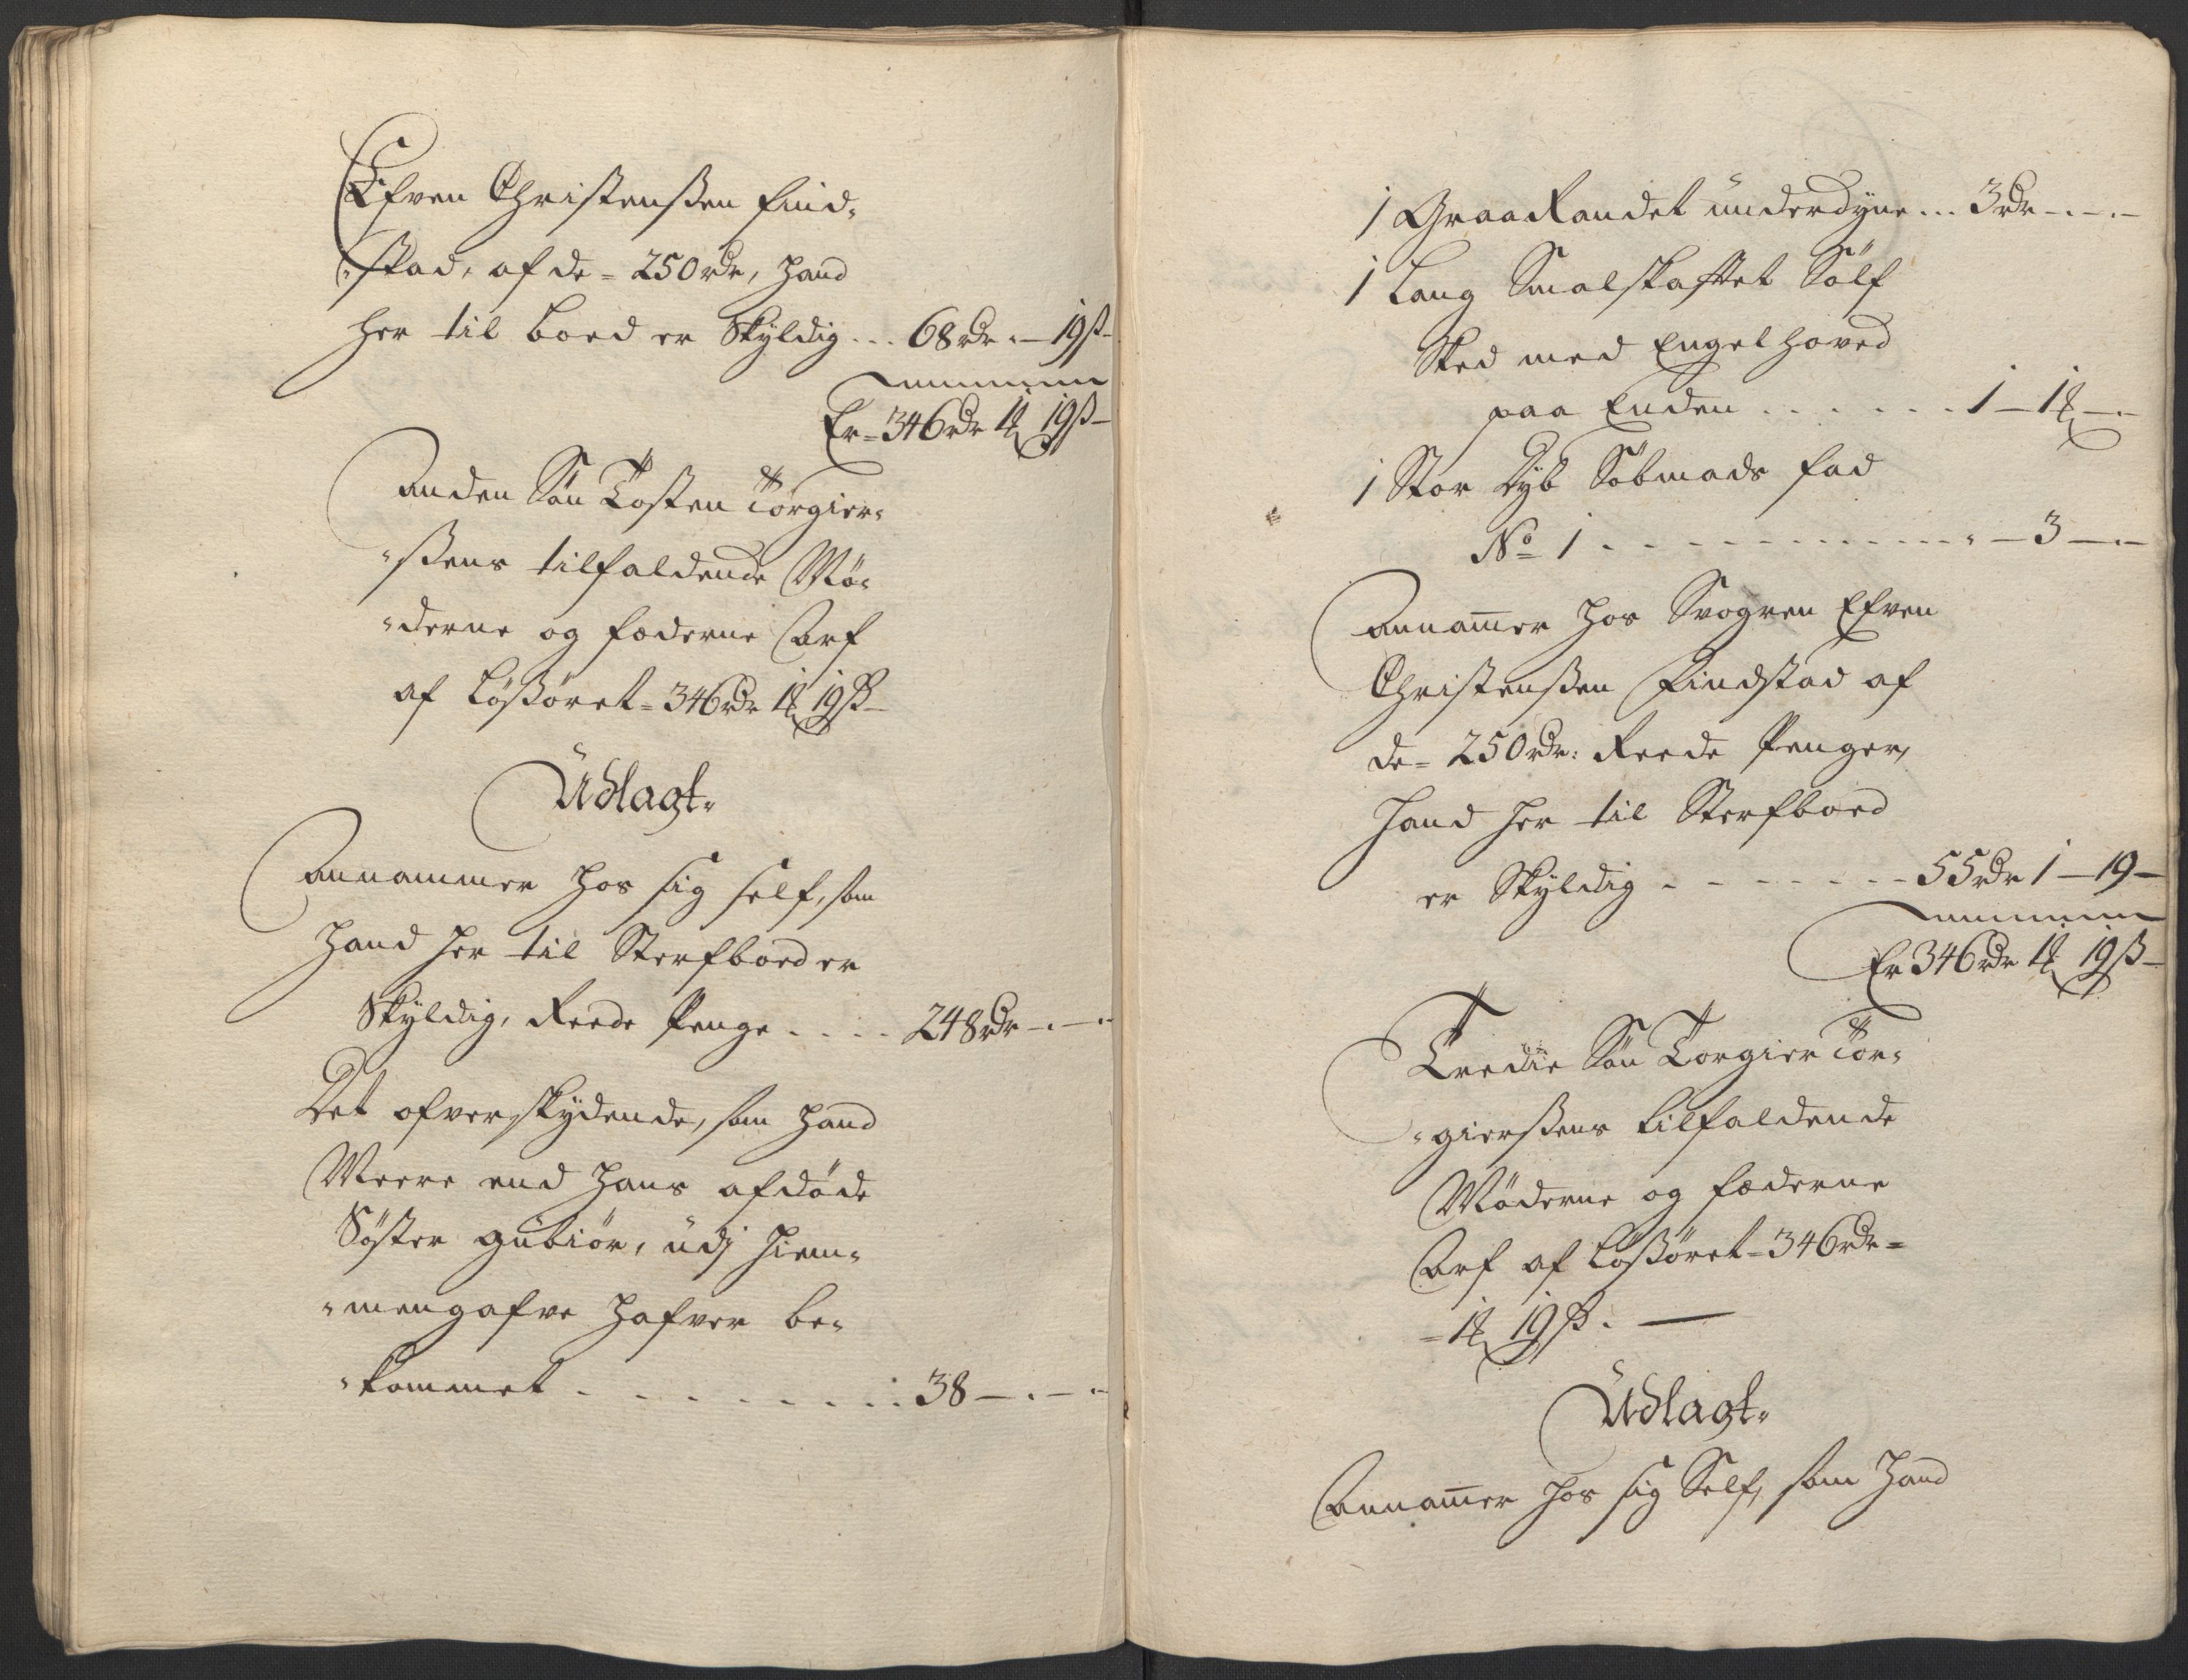 Efven Christenßen Find-
-stad, af de = 250 rdr, hand
her til boed er Skyldig ... 68 rdr . – 19 ß –
Er = 346 rdr 1 ƭ 19 ß –
Anden Søn Tosten Torgier-
-ßens tilfaldende Mø-
-derne og fæderne Arf
af Løßøret = 346 rdr 1 ƭ 19 ß –
Udlagt.
Annammer hos sig self, som
hand her til Sterfboed er
Skyldig, Reede Penge .... 248 rdr – . – .
Det ofverskydende, som hand
Meere end hans afdøde
Søster Gubiør, udj hiem-
-mengafve hafver be-
-kommet . . . . . . . . . 38 – . – .
1 Graa Randet underdyne ... 3 rdr – . – . –
1 Lang Smalskaftet Sølf
Sked med Engelhoved
paa Enden . . . . . . . 1 – 1 ƭ – . –
1 Stor dyb Sobmads fad
No 1 . . . . . . . . . . . . – 3 – . –
Annam̄er hos Svogren Efven
Christenßen Findstad af
de = 250 rdr: Reede Penger,
hand her til Sterfboed
er Skyldig . . . . . . . 55 rdr 1 – 19 –
Er 346 rdr 1 ƭ 19 ß –
Tredie Søn Torgier Tor-
-gierßens tilfaldende
Møderne og fæderne
Arf af Løßøret = 346 rdr =
= 1 ƭ 19 ß . —
Udlagt.
Annam̄er hos sig Self, som hand